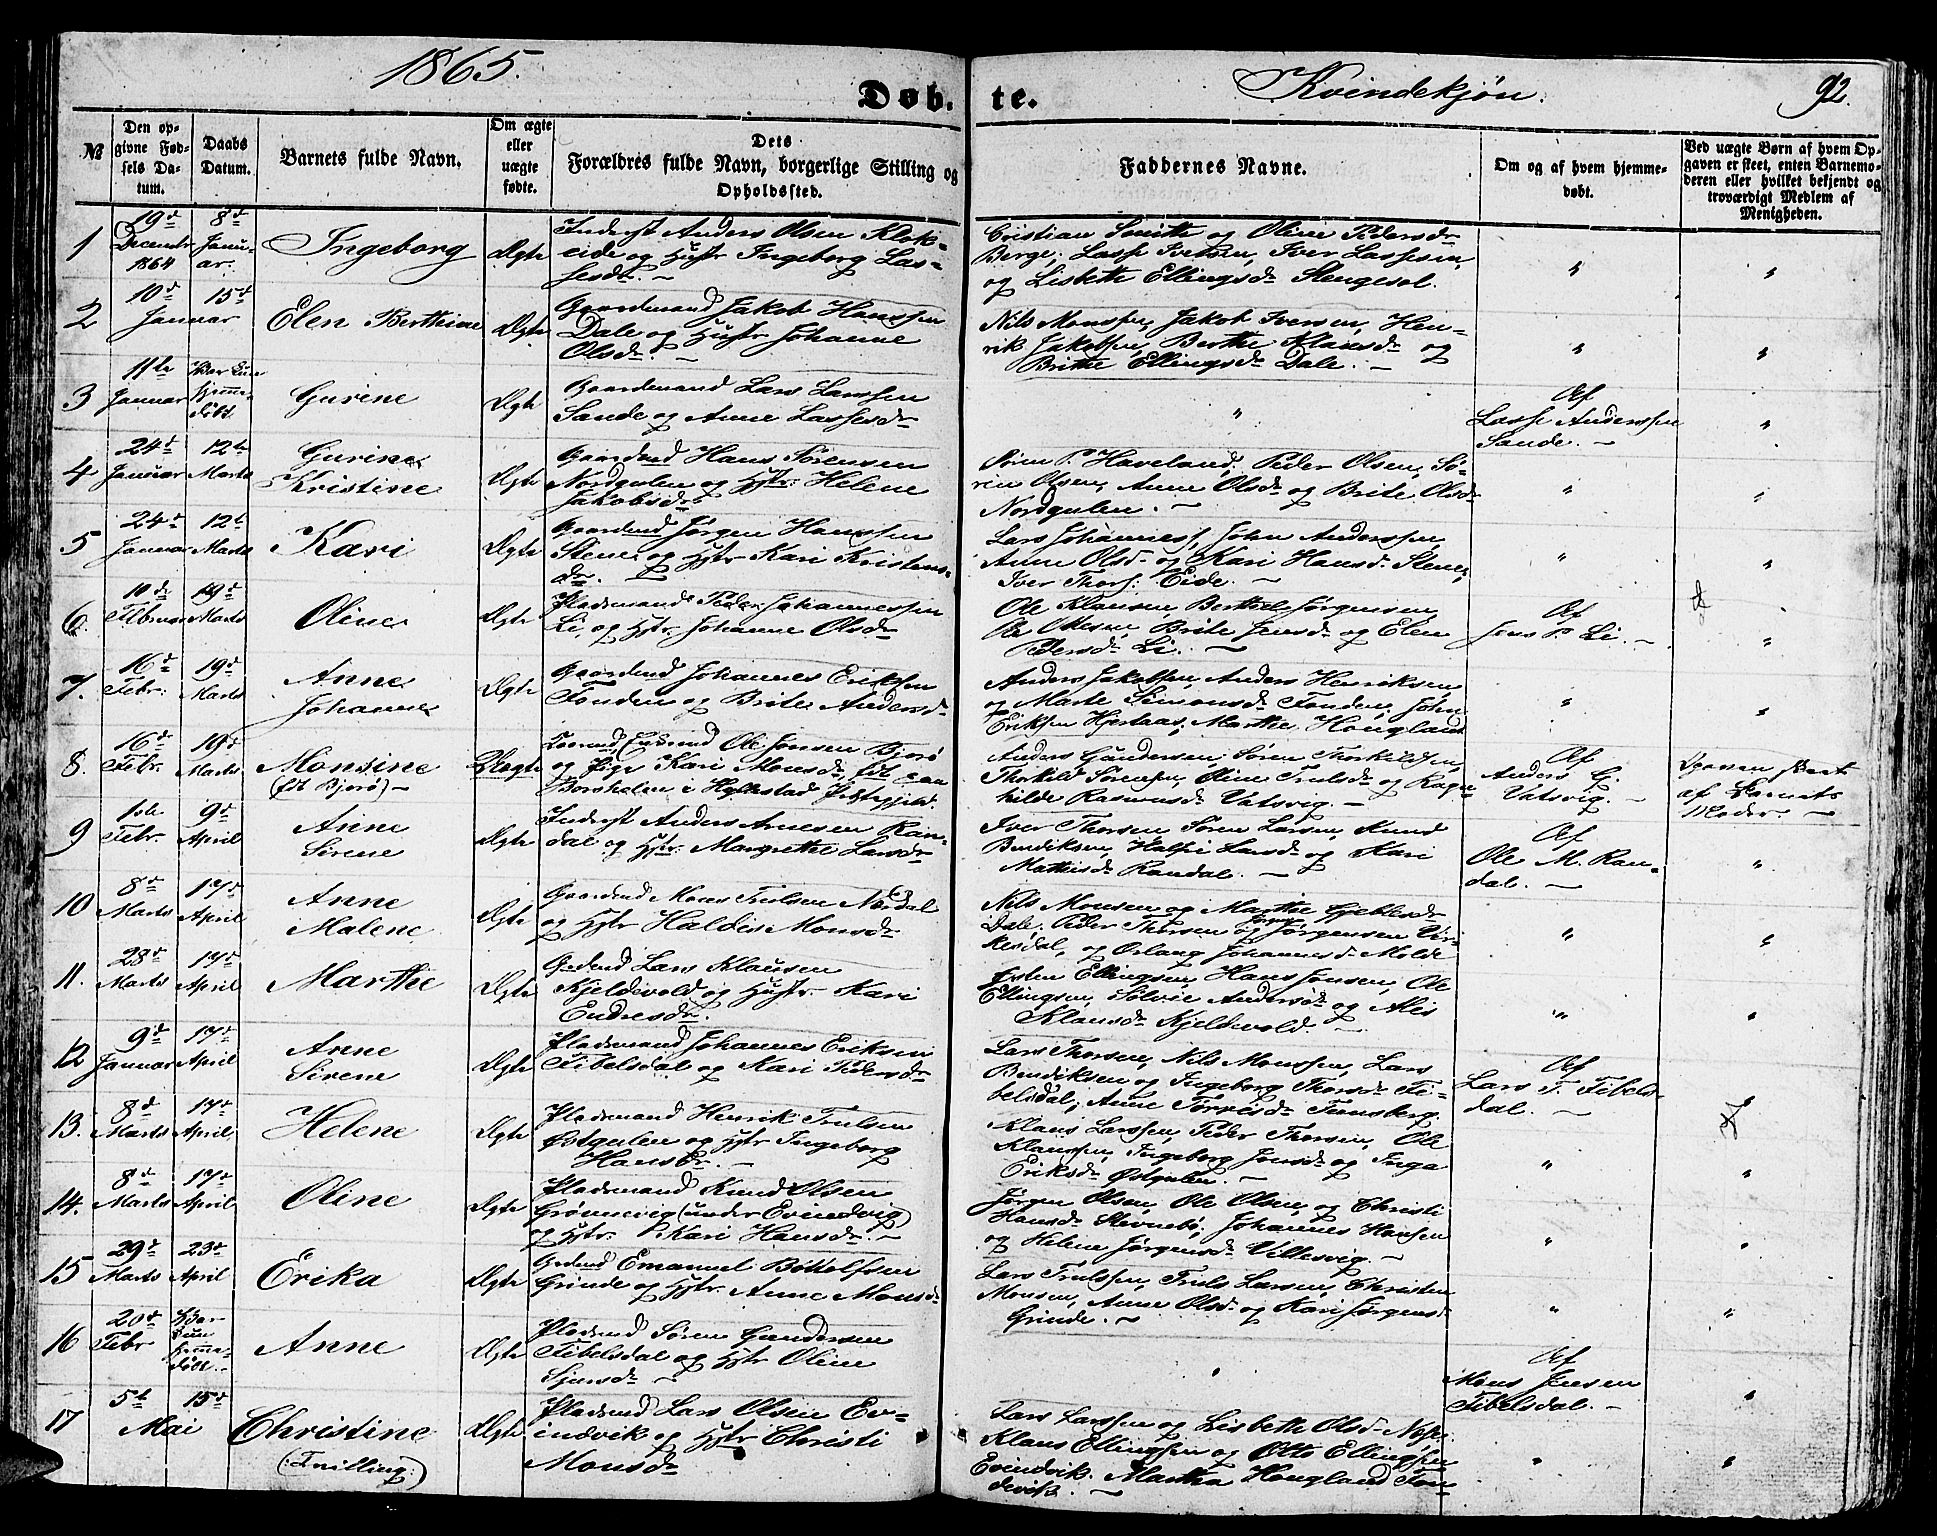 1865.
Døb. te.
Kvindekjøn.
92.
№
Den op-
givne Fød-
sels Da-
tum.
Daabs
Datum.
Barnets fulde Navn.
Om ægte
eller
uægte
fødte.
Dets
Forældres fulde Navn, borgerlige Stilling og
Opholdssted.
Faddernes Navne.
Om og af hvem hjemme-
døbt.
Ved uægte Børn af hvem Op-
gaven er skeet, enten Barnemo-
deren eller hvilket bekjendt og
troværdigt Medlem af
Menigheden.
1
19d
December
1864
8d
Janu-
ar.
Ingeborg
Ægte
Inderst Anders Olsen Klok-
eide og Hustr Ingeborg Las-
sesdr. –
Cristian Smith og Oline Pedersdr
Berge; Lasse Iversen, Iver Lassesen,
og Lisbeth Ellingsdr Stengesol.
2
10d 15d
Januar
Elen Berthine
Ægte
Gaardmand Jakob Hanssen
Dale og Hustr Johanne
Olsdr –
Nils Monssen, Jakob Iversen, Hen-
rik Jakobsen, Berthe Klausdr og
Brithe Ellingsdr Dale. –
3
11te
Januar
Hjemme-
døbt
Gurine
Ægte
Gaardmand Lars Larssen
Sande og Anne Lassesdr
Af
Lasse Anderssen
Sande. –
4
24d
Januar
12te
Marts
Gurine
Kristine
Ægte
Gaardmd Hans Sørensen
Nordgulen og Hstr. Helene
Jakobsdr
Søren P. Haveland, Peder Olsen, Sø-
ren Olsen, Anne Olsdr og Brite Olsdr
Nordgulen. –
5
24d
Januar
12te
Marts
Kari
Ægte
Gaardmd Jørgen Hanssen
Stene og Hstr Kari Kristens-
dr. –
Lars Johanness, John Anderssen,
Anne Olsdr og Kari Hansdr Stene,
Iver Thors: Eide. –
6.
10de
Februar
19d
Marts
Oline
Ægte
Pladsmand Peder Johannessen
Li, og Hstr Johanne Olsdr
Ole Klausen Berthel Jørgensen,
Ole Ottesen, Brite Jensdr og Elen
Pedersdr Li. –
Af
Jens P. Li. –
7.
16d
Febr:
19d
Marts
Anne
Johanne
Ægte
Gaardmd Johannes Eriksen
Fonden og Brite Andersdr
Anders Jakobsen, Anders Henriksen
og Marte Simonsdr Fonden; John
Eriksen Hjertaas; Marthe Hougland
8.
16d
Febr.
19d
Marts
Monsine
(født Bjorø) –
Uægte
Ole Jonsen Bjorø
og Pige Kari Monsdr
Borsholm i Hyllestad Præstegjeld.
Anders Gundersen, Søren Thorkildsen,
Thorkild Sørensen, Oline Trulsdr og Ragn-
hilde Rasmusdr Vatsvig. –
Af
Anders G.
Vatsvig. –
af Barnets
Moder. –
9
1ste
Febr.
9d
April
Anne
Sirene
Ægte
Inderst Anders Arnesen Ran-
dal og Hstr. Margrethe Larsdr
Iver Thorsen Søren Larsen, Knud
Bendiksen, Larsdr og Kari
Mathisdr Randal. –
Af
Ole M. Ran-
dal. –
10
8d
Marts
17d
April
Anne
Malene
Ægte
Gaardmd Mons Trulsen Nordal
og Hstr Haldis Monsdr
Nils Monsen og Marthe Gjeblesdr
Dale; Peder Thorsen og Jørgensen Vir-
kesdal, og Johannesdr Molde
11.
28d
Marts
17d
April
Marthe
Ægte
Lars Klausen
Kjeldevold og Hustr. Kari
Endresdr.
Ellingsen, Hans Jonsen, Ole
Ellingsen, Sølvie Andersdr og Alis
Klausdr Kjeldevold. –
12
9d
Januar
17d
April
Anne
Sirene
Ægte
Pladsmand Johannes Eriksen
Tibelsdal og Kari Pedersdr
Lars Thorsen, Nils Monssen, Lars
Bendiksen og Ingeborg Thorsdr Ti-
belsdal; Anne Torrisdr Tennsberg.
Af
Lars T. Tibels-
dal. –
13.
8d
Marts
17d
April
Helene
Ægte
Pladsmand Henrik Trulsen
Østgulen og Hstr Ingeborg
Hansdr. –
Klaus Larssen, Peder Thorsen, Ole
Klaussen, Ingeborg Jonsdr og Inga
Eriksdr Østgulen. –
14.
8d
Marts
17d
April
Oline
Ægte
Pladsmand Knud Olsen
Grønnevig (under Evindvig)
og Hstr. Kari Hansdr. –
Jørgen Olsen, Ole Olsen, og Christi
Hansdr Stevnebø, Johannes Hansen
og Helene Jørgensdr Villesvig. –
15
29d
Marts
23d
April
Erika
Ægte
Emanuel Bottolfsen
Grinde og Hstr Anne Monsdr
Lars Trulssen, Truls Larsen, Christen
Monsen, Anne Olsdr og Kari Jørgensdr
Grinde. –
16
20d
Febr
Hjemme-
døbt. –
Anne
Ægte
Pladsmd Søren Gundersen
Tibelsdal og Hstr Oline
Sjursdr –
Af
Mons Jensen
Tibelsdal. –
17
5te 15d
Mai
Christine
(:Tvilling:)
Ægte
Pladsmd Lars Olsen Ev-
indvik og Hstr Christi
Monsdr
Lars Larssen og Lisbeth Olsdr
Klaus Ellingssen og Otto Ellingsen
Evindvik. Martha Hougland